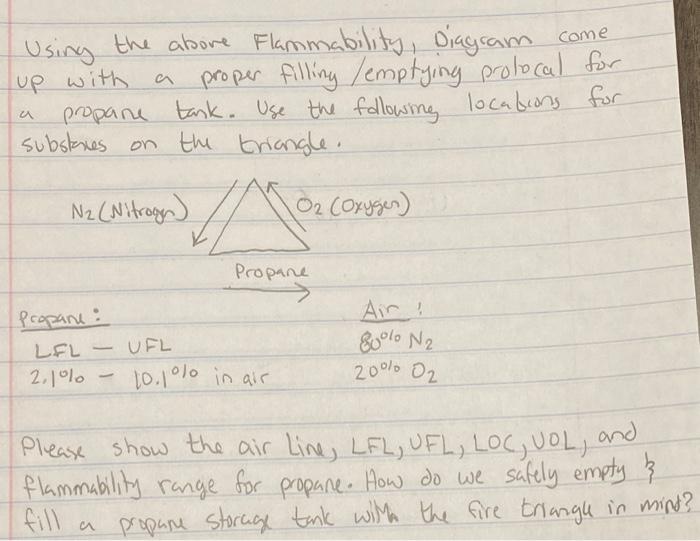 Using the above Flammability, Diagram come
up with a proper filling /emptying protocal for
a propane tank. Use the following locations for
substances on the triangle.
N2 (Nitrogen) O2 (Oxygen)
Propane
Propane: Air:
LFL — UFL 80% N2
2.1% — 10.1% in air 20% O2
Please show the air line, LFL, UFL, LOC, UOL, and
flammability range for propane. How do we safely empty &
fill a propane storage tank with the fire triangle in mind?